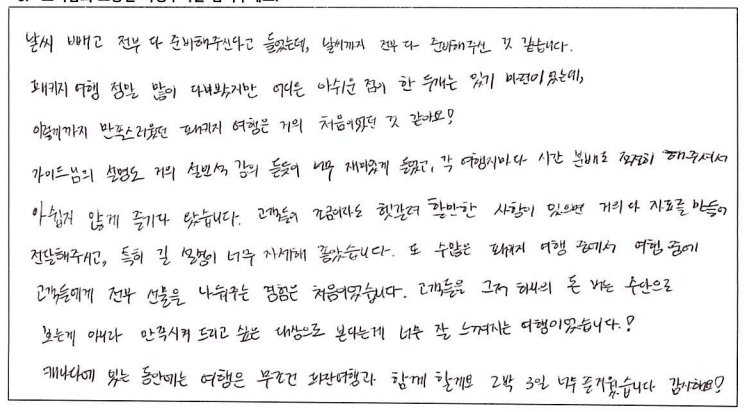 날씨 빼고 전부 다 준비해주신다고 들었는데, 날씨까지 전부 다 준비해주신 것 같습니다.
패키지 여행 정말 많이 다녀봤지만 어디든 아쉬운 점이 한 두개는 있기 마련이었는데,
이렇게까지 만족스러웠던 패키지 여행은 거의 처음이었던 것 같아요!
가이드님의 설명도 거의 설민석 강의 듣듯이 너무 재미있게 들었고, 각 여행지마다 시간 분배도 적절히 해주셔서
아쉽지 않게 즐기다 왔습니다. 고객들이 조금이라도 헷갈려 할만한 사항이 있으면 거의 다 자료를 만들어
전달해주시고, 특히 길 설명이 너무 자세해 좋았습니다. 또 수많은 패키지 여행 중에서 여행 중에
고객들에게 전부 선물을 나눠주는 경험은 처음이었습니다. 고객들을 그저 하나의 돈 버는 수단으로
보는게 아니라 만족시켜 드리고 싶은 대상으로 본다는게 너무 잘 느껴지는 여행이었습니다!
캐나다에 있는 동안에는 여행은 무조건 파란여행과 함께 할게요 2박 3일 너무 즐거웠습니다 감사해요!